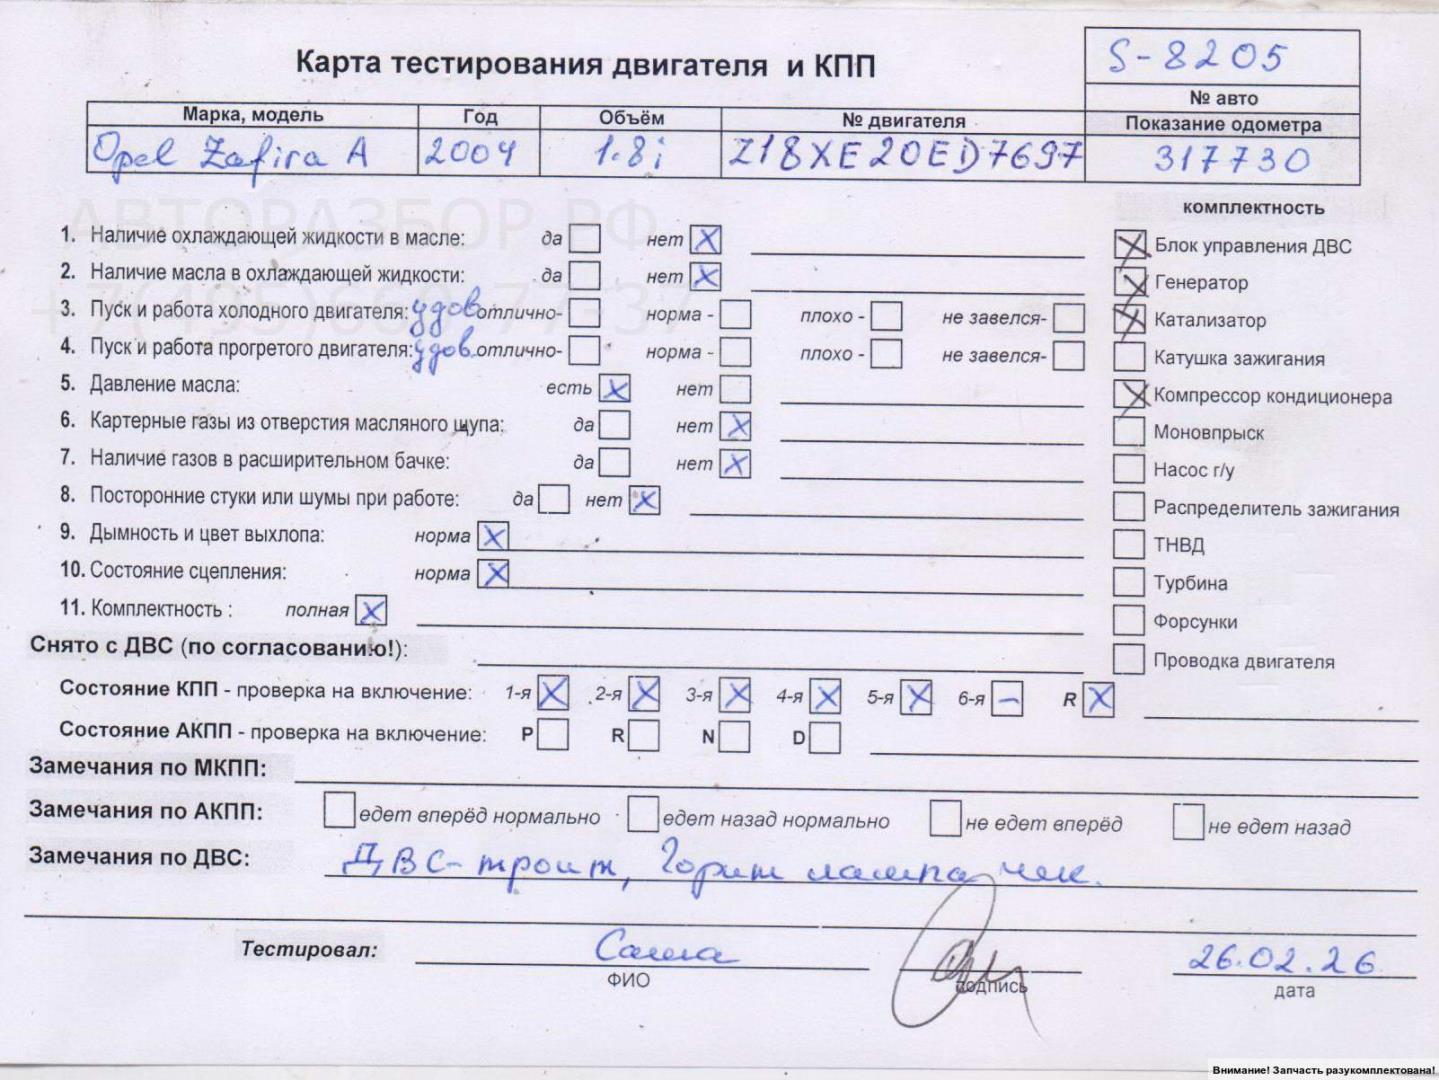 S-8205
Карта тестирования двигателя и КПП
№ авто
Марка, модель Год Объём № двигателя Показание одометра
Opel Zafira A 2004 1.8i Z18XE20ED7697 317730
АВТОРАЗБОР.РФ
комплектность
1. Наличие охлаждающей жидкости в масле: да нет X
X Блок управления ДВС
2. Наличие масла в охлаждающей жидкости: да нет X
X Генератор
3. Пуск и работа холодного двигателя: удов. отлично- норма - плохо - не завелся-
X Катализатор
4. Пуск и работа прогретого двигателя: удов. отлично- норма - плохо - не завелся-
Катушка зажигания
5. Давление масла: есть X нет
X Компрессор кондиционера
6. Картерные газы из отверстия масляного щупа: да нет X
Моновпрыск
7. Наличие газов в расширительном бачке: да нет X
Насос г/у
8. Посторонние стуки или шумы при работе: да нет X
Распределитель зажигания
9. Дымность и цвет выхлопа: норма X
ТНВД
10. Состояние сцепления: норма X
Турбина
11. Комплектность : полная X
Форсунки
Снято с ДВС (по согласованию!):
Проводка двигателя
Состояние КПП - проверка на включение: 1-я X 2-я X 3-я X 4-я X 5-я X 6-я – R X
Состояние АКПП - проверка на включение: P R N D
Замечания по МКПП:
Замечания по АКПП: едет вперёд нормально едет назад нормально не едет вперёд не едет назад
Замечания по ДВС: ДВС-троит, Горит лампа чек.
Тестировал: Саша 26.02.26
ФИО подпись дата
Внимание! Запчасть разукомплектована!